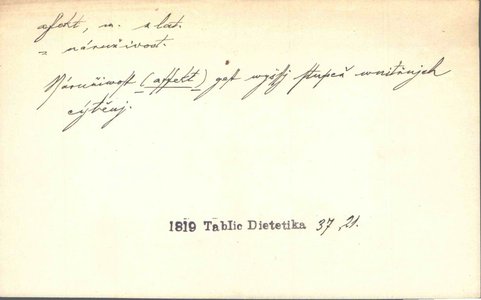 afekt, m. z lat.
= náruživost.
Náružiwost (affekt) gest wyššj stupeň wnitřnjch
cýtěnj.
1819 Tablic Dietetika 37, 21.